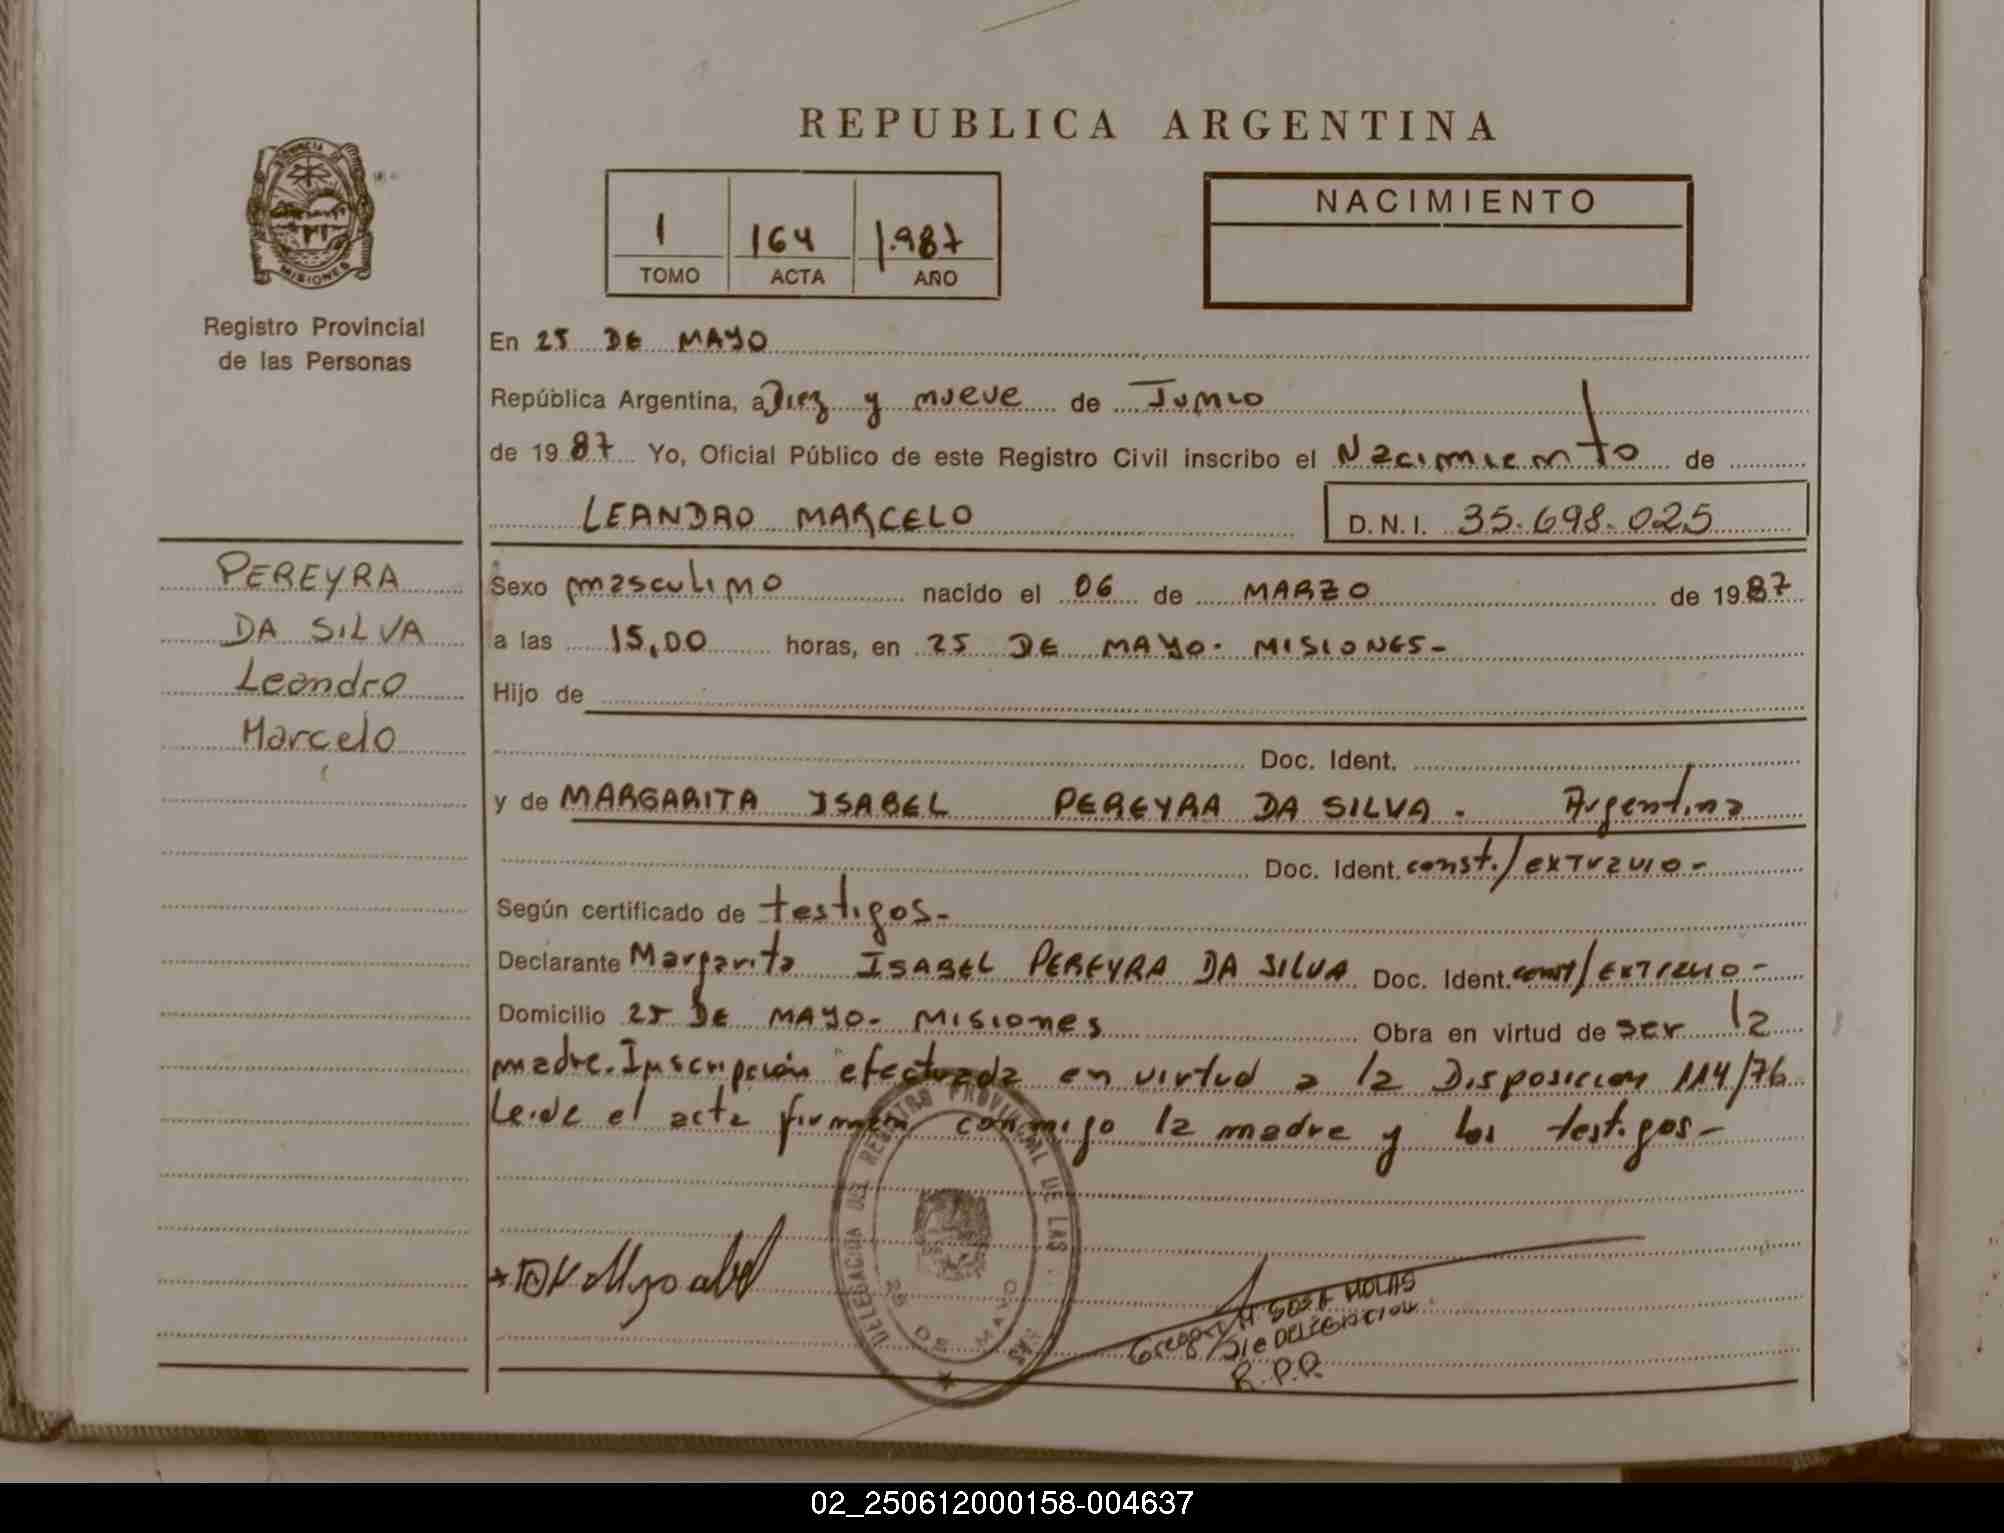 REPUBLICA ARGENTINA
PROVINCIA DE
MISIONES
Registro Provincial
de las Personas
1 164 1.987
TOMO ACTA AÑO
NACIMIENTO
En 25 DE MAYO
República Argentina, a Diez y nueve de Junio
de 1987 Yo, Oficial Público de este Registro Civil inscribo el Nacimiento de
LEANDRO MARCELO D.N.I. 35.698.025
PEREYRA
DA SILVA
Leandro
Marcelo
Sexo masculino nacido el 06 de MARZO de 1987
a las 15,00 horas, en 25 DE MAYO. MISIONES-
Hijo de
Doc. Ident.
y de MARGARITA ISABEL PEREYRA DA SILVA. Argentina
Doc. Ident. const./extravio-
Según certificado de testigos-
Declarante Margarita ISABEL PEREYRA DA SILVA Doc. Ident. const/extravio-
Domicilio 25 DE MAYO- MISIONES Obra en virtud de ser la
madre. Inscripción efectuada en virtud a la Disposicion 114/76
Leide el acta firman conmigo la madre y los testigos-
DELEGACION DEL REGISTRO PROVINCIAL DE LAS
25 DE MAYO
SOSA MOLAS
DELEGACION
R.P.P.
02_250612000158-004637